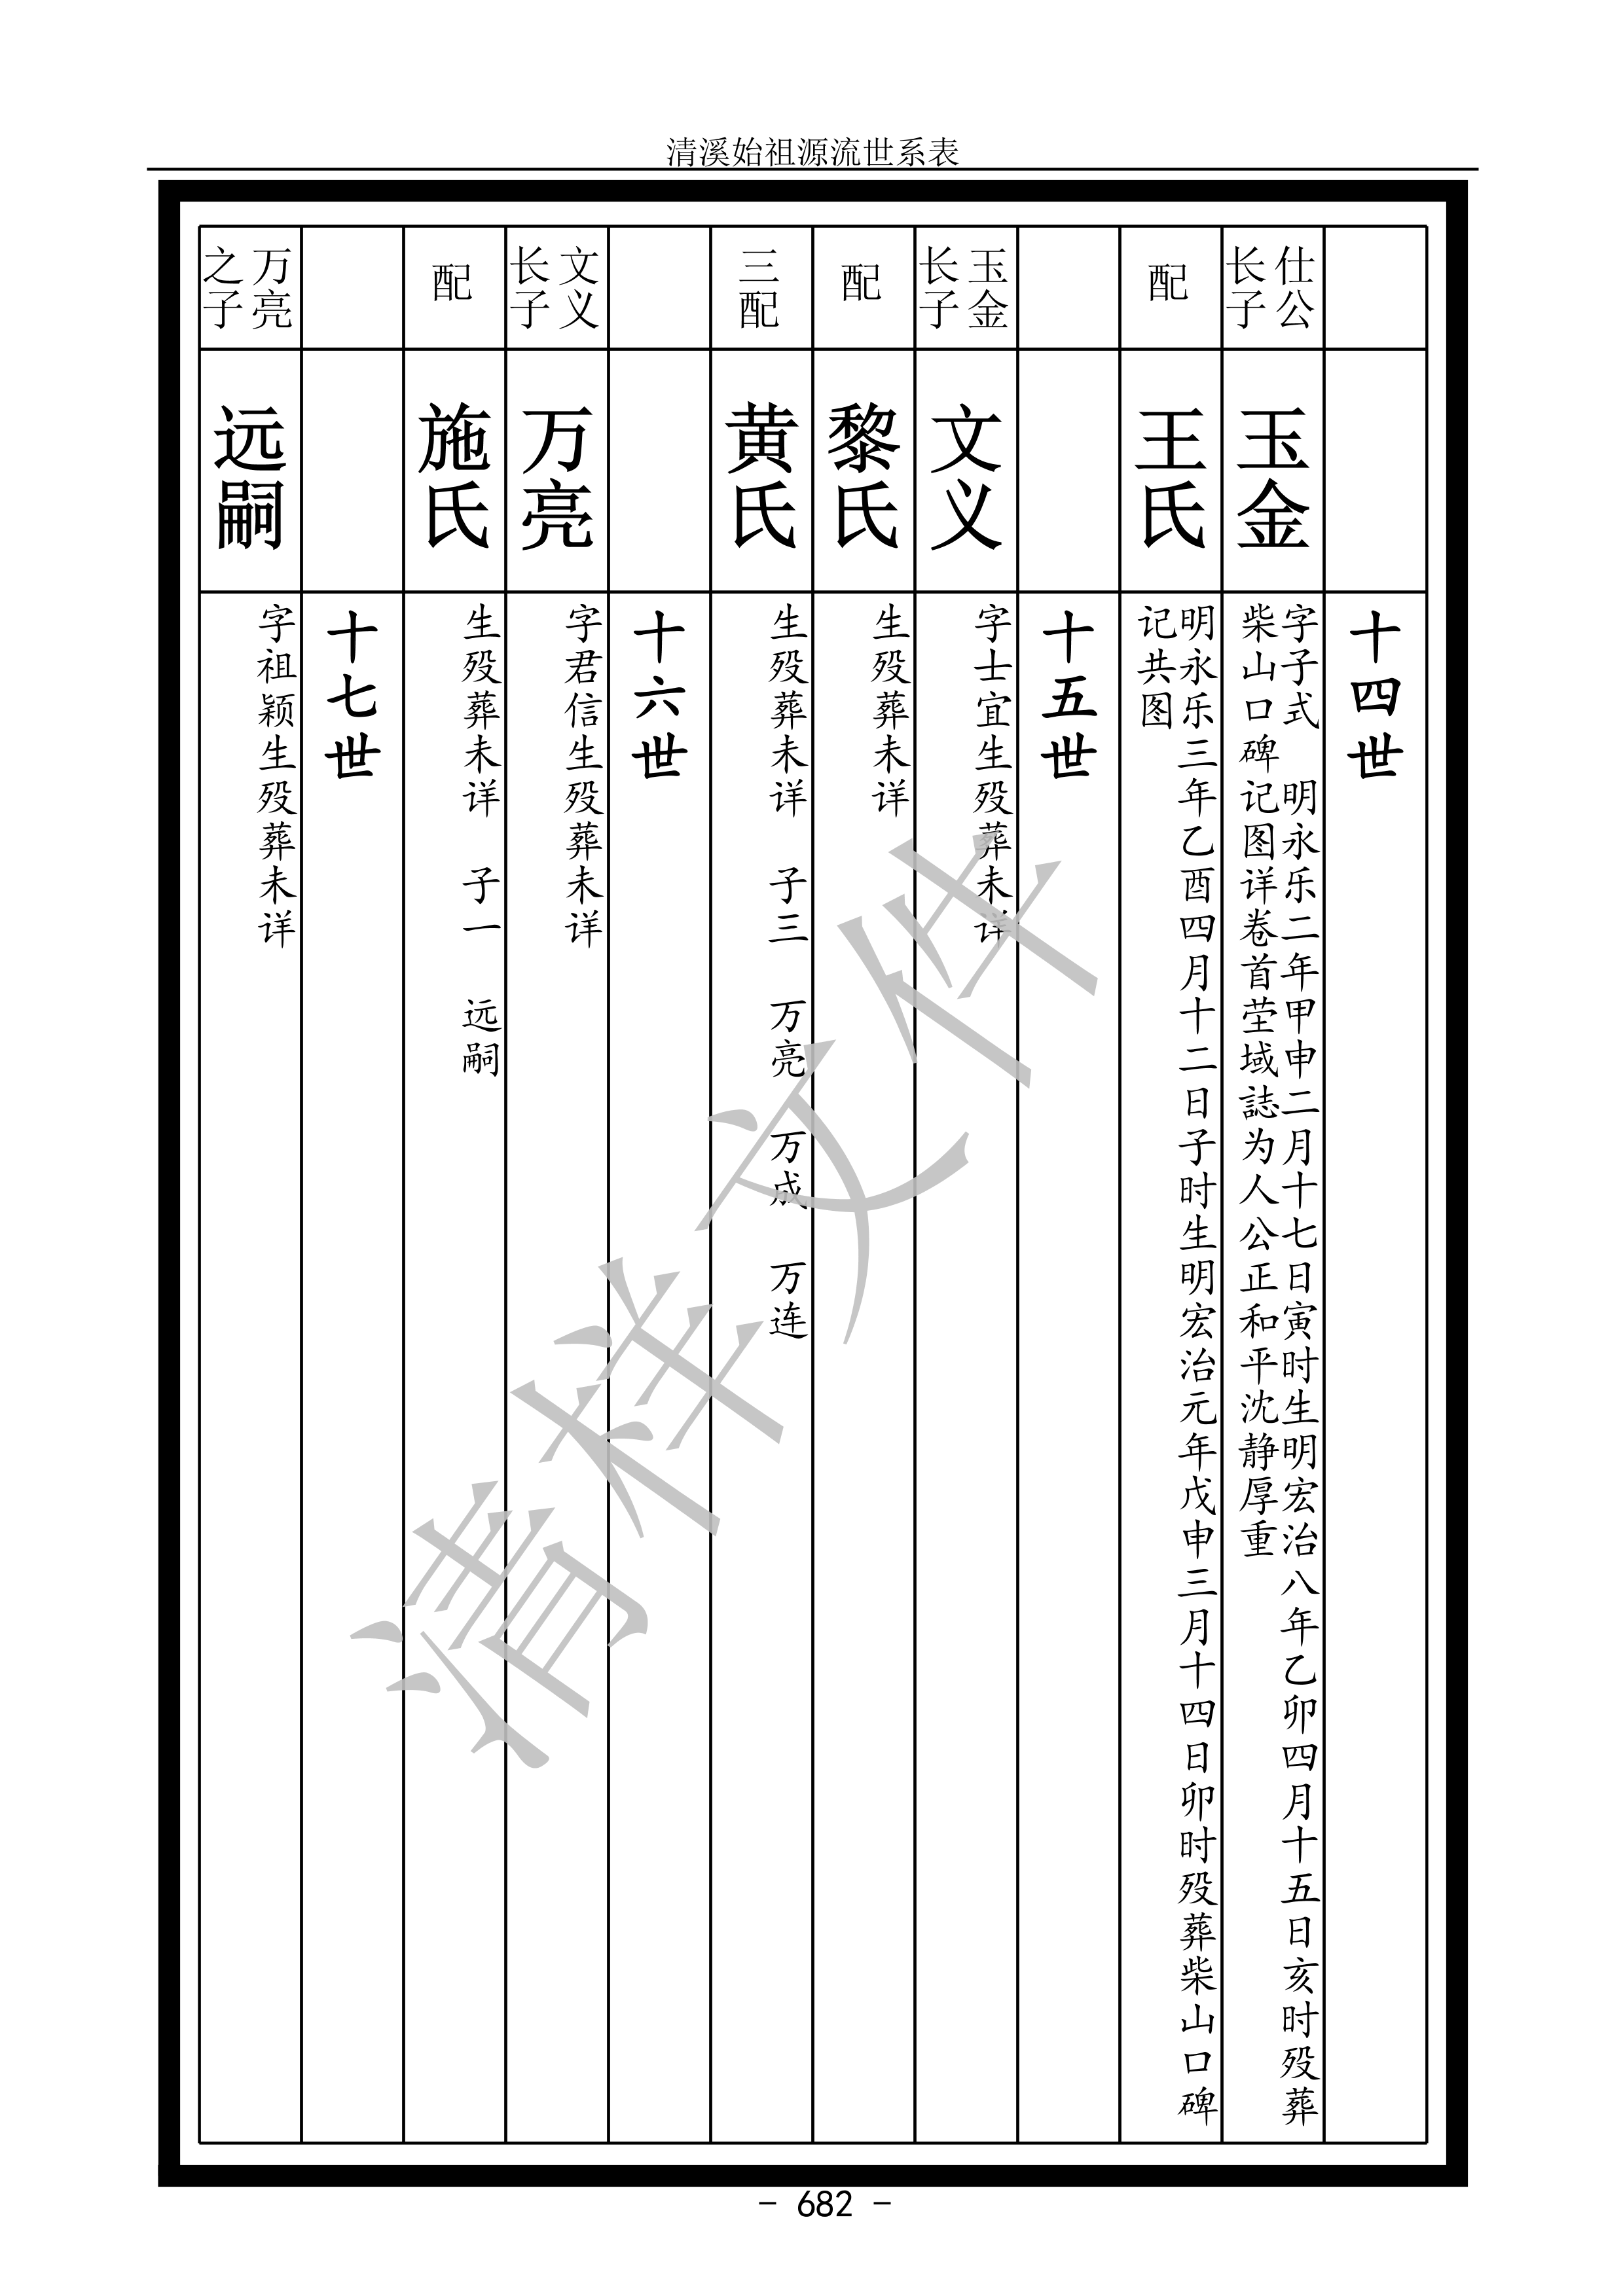 清溪始祖源流世系表
十四世
仕公
长子
玉金
字子式　明永乐二年甲申二月十七日寅时生明宏治八年乙卯四月十五日亥时殁葬
柴山口碑记图详卷首茔域誌为人公正和平沈静厚重
配
王氏
明永乐三年乙酉四月十二日子时生明宏治元年戊申三月十四日卯时殁葬柴山口碑
记共图
十五世
玉金
长子
文义
字士宜生殁葬未详
配
黎氏
生殁葬未详
三配
黄氏
生殁葬未详　子三　万亮　万成　万连
十六世
文义
长子
万亮
字君信生殁葬未详
配
施氏
生殁葬未详　子一　远嗣
十七世
万亮
之子
远嗣
字祖颖生殁葬未详
清样文件
- 682 -